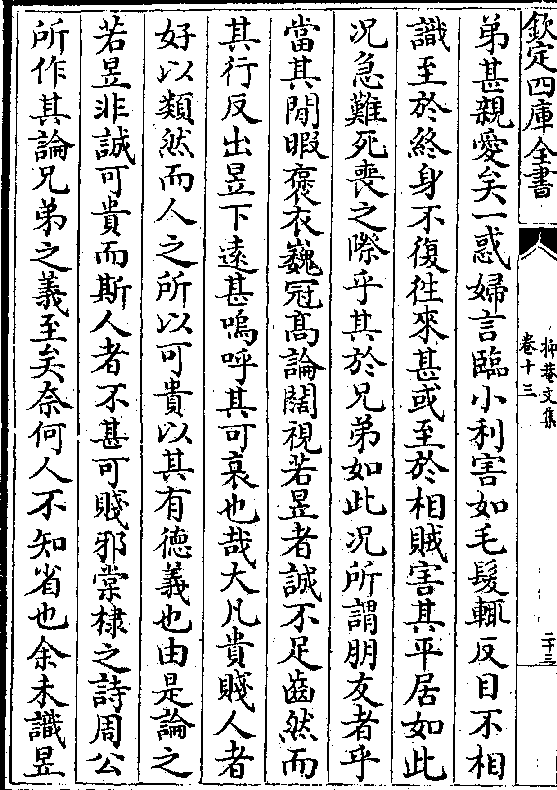 欽定四庫全書
抑菴文集
卷十三
二十三
弟甚親愛矣一惑婦言臨小利害如毛髮輒反目不相
識至於終身不復徃來甚或至於相賊害其平居如此
况急難死喪之際乎其於兄弟如此况所謂朋友者乎
當其閒暇褒衣巍冠髙論闊視若昱者誠不足齒然而
其行反出昱下逺甚嗚呼其可哀也哉大凡貴賤人者
好以類然而人之所以可貴以其有德義也由是論之
若昱非誠可貴而斯人者不甚可賤邪棠棣之詩周公
所作其論兄弟之義至矣奈何人不知省也余未識昱